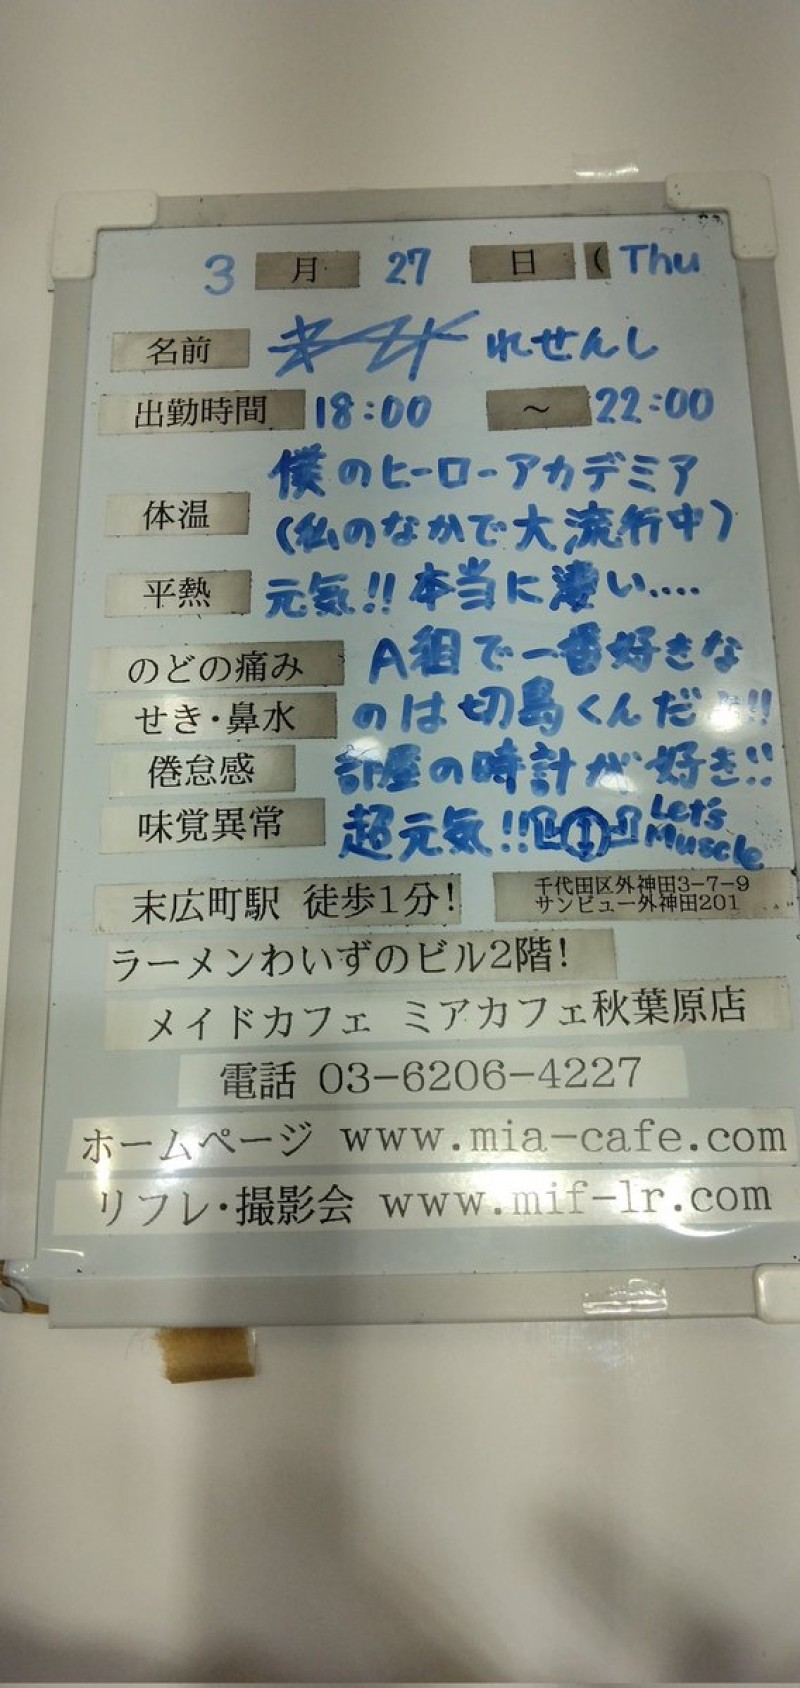 3 月 27 日 ( Thu
名前 れせんし
出勤時間 18:00 ～ 22:00
僕のヒーローアカデミア
体温 (私のなかで大流行中)
平熱 元気!! 本当に凄い....
のどの痛み A組で一番好きな
せき・鼻水 のは切島くんだよ!!
倦怠感 部屋の時計が好き!!
味覚異常 超元気!! Let's Muscle
末広町駅 徒歩1分!
千代田区外神田3-7-9
サンビュー外神田201
ラーメンわいずのビル2階!
メイドカフェ ミアカフェ秋葉原店
電話 03-6206-4227
ホームページ www.mia-cafe.com
リフレ・撮影会 www.mif-lr.com